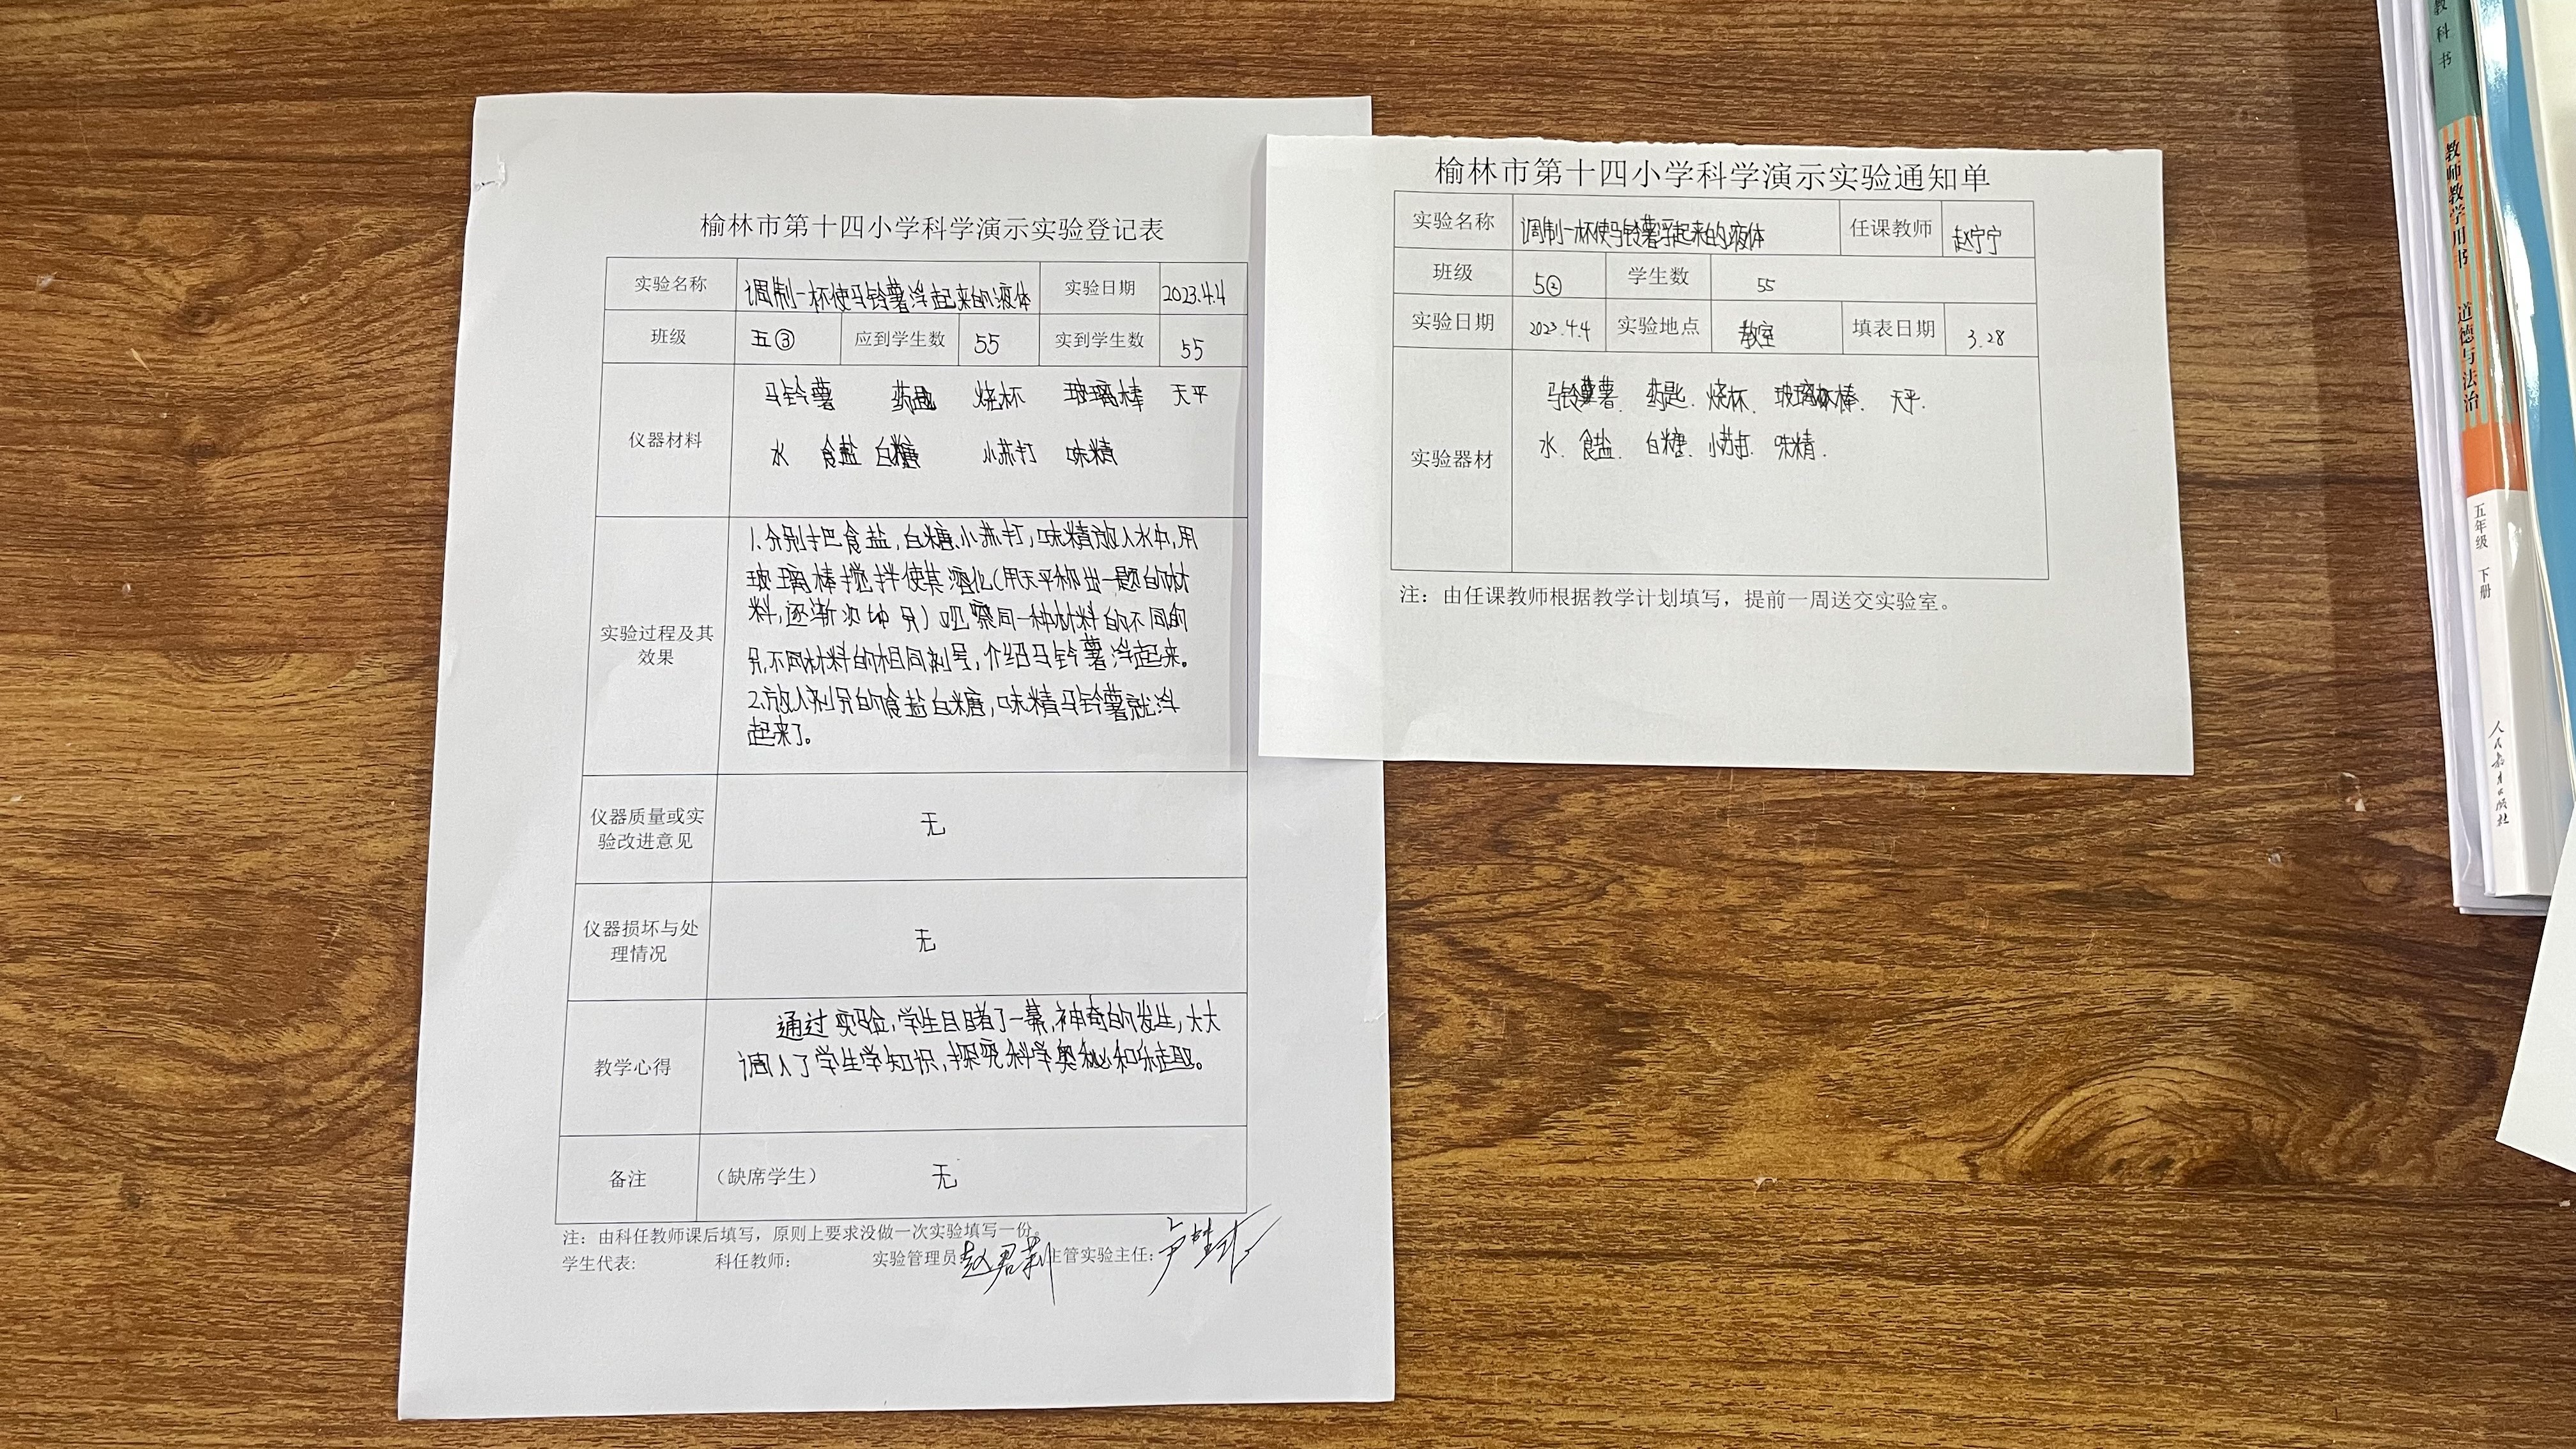 榆林市第十四小学科学演示实验登记表
实验名称 调制一杯使马铃薯浮起来的液体 实验日期 2023.4.4
班级 五③ 应到学生数 55 实到学生数 55
仪器材料
马铃薯 药匙 烧杯 玻璃棒 天平
水 食盐 白糖 小苏打 味精
实验过程及其
效果
1.分别把食盐,白糖、小苏打,味精放入水中,用
玻璃棒搅拌使其溶化(用天平称出一题的材
料,逐渐)观察同一种材料的不同
不同材料的相同剂另,介绍马铃薯浮起来。
2.放入剂另的食盐白糖,味精马铃薯就浮
起来了。
仪器质量或实
验改进意见
无
仪器损坏与处
理情况
无
教学心得
通过实验,学生目睹了一幕,神奇的发生,大大
调入了学生学知识,探究科学奥秘和乐趣。
备注 (缺席学生) 无
注:由科任教师课后填写,原则上要求没做一次实验填写一份。
学生代表: 科任教师: 实验管理员 赵君莉 主管实验主任:
榆林市第十四小学科学演示实验通知单
实验名称 调制一杯使马铃薯浮起来的液体 任课教师 赵宁宁
班级 5② 学生数 55
实验日期 2023.4.4 实验地点 教室 填表日期 3.28
实验器材
马铃薯、药匙、烧杯、玻璃棒、天平.
水、食盐、白糖、小苏打、味精.
注:由任课教师根据教学计划填写,提前一周送交实验室。
教科书
教师教学用书 道德与法治
五年级 下册
人民教育出版社